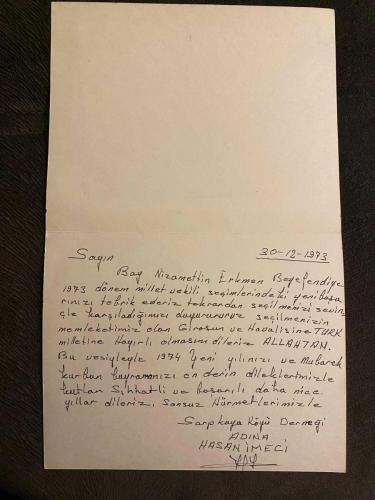 30-12-1973
Sayın
Bay Nizamettin Erkmen Beyefendiye
1973 dönem millet vekili seçimlerindeki yeni başa
rınızı tebrik ederiz tekrardan seçilmenizi sevin
çle karşıladığımızı duyururuz seçilmenizin
memleketimiz olan Giresun ve Havalisine TÜRK
milletine Hayırlı olmasını dileriz ALLAHTAN.
Bu vesiyleyle 1974 Yeni yılınızı ve Mubarek
kurban bayramınızı en derin dileklerimizle
kutlar Sıhhatli ve başarılı daha nice
yıllar dileriz. Sonsuz Hürmetlerimizle
Sarpkaya Köyü Derneği
ADINA
HASAN İMECİ